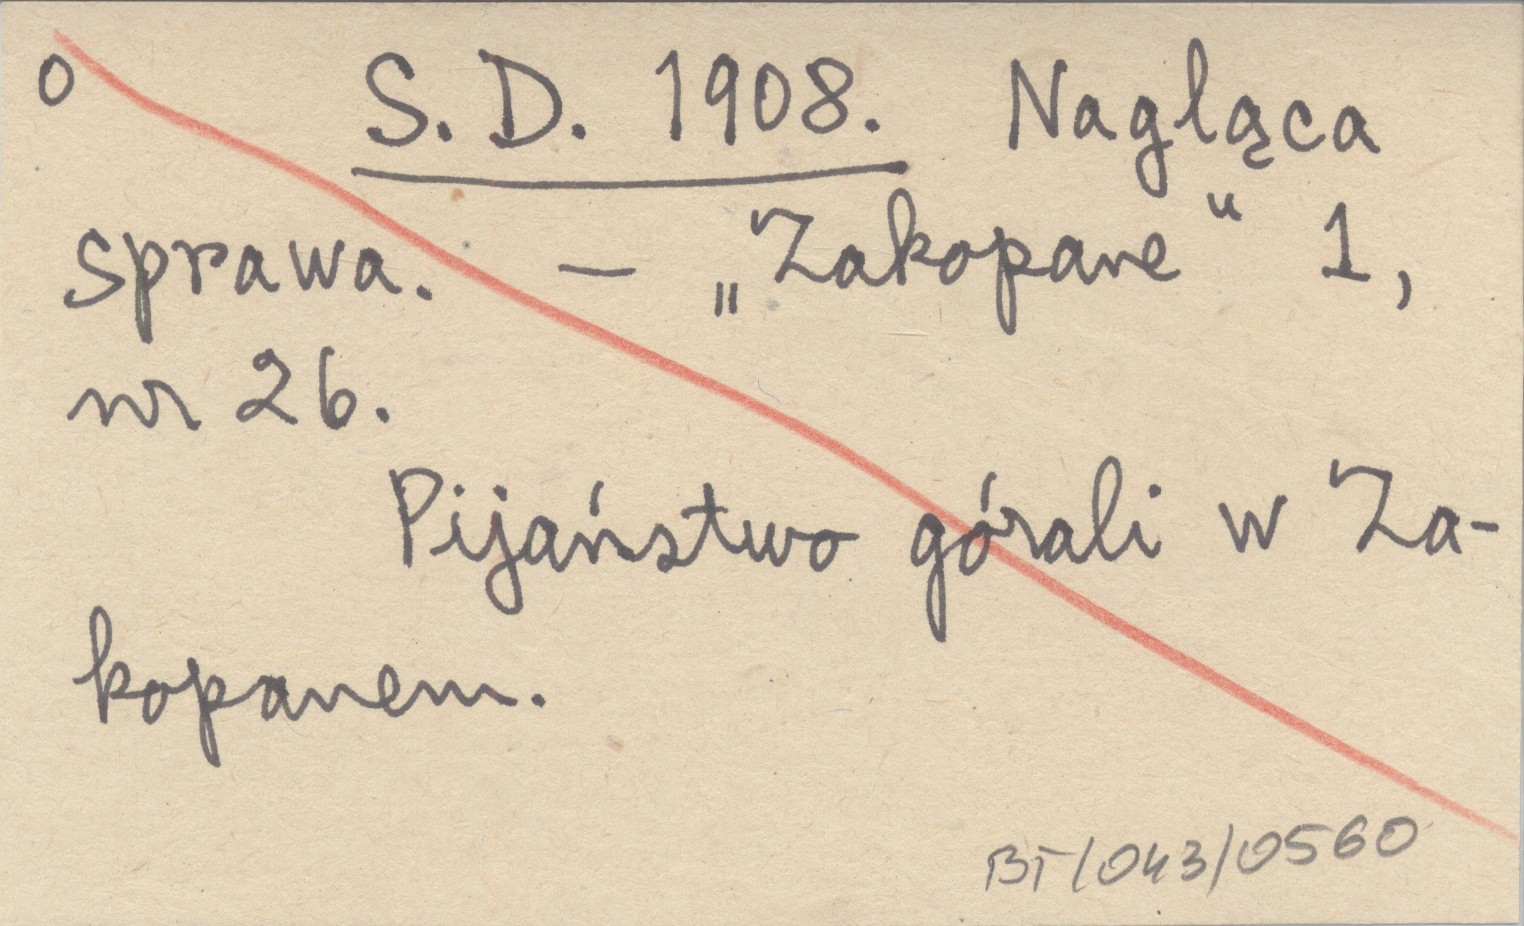 0 S. D. 1908. Nagląca
sprawa. — „Zakopane" 1,
nr 26.
Pijaństwo górali w Za-
kopanem.
BT/043/0560